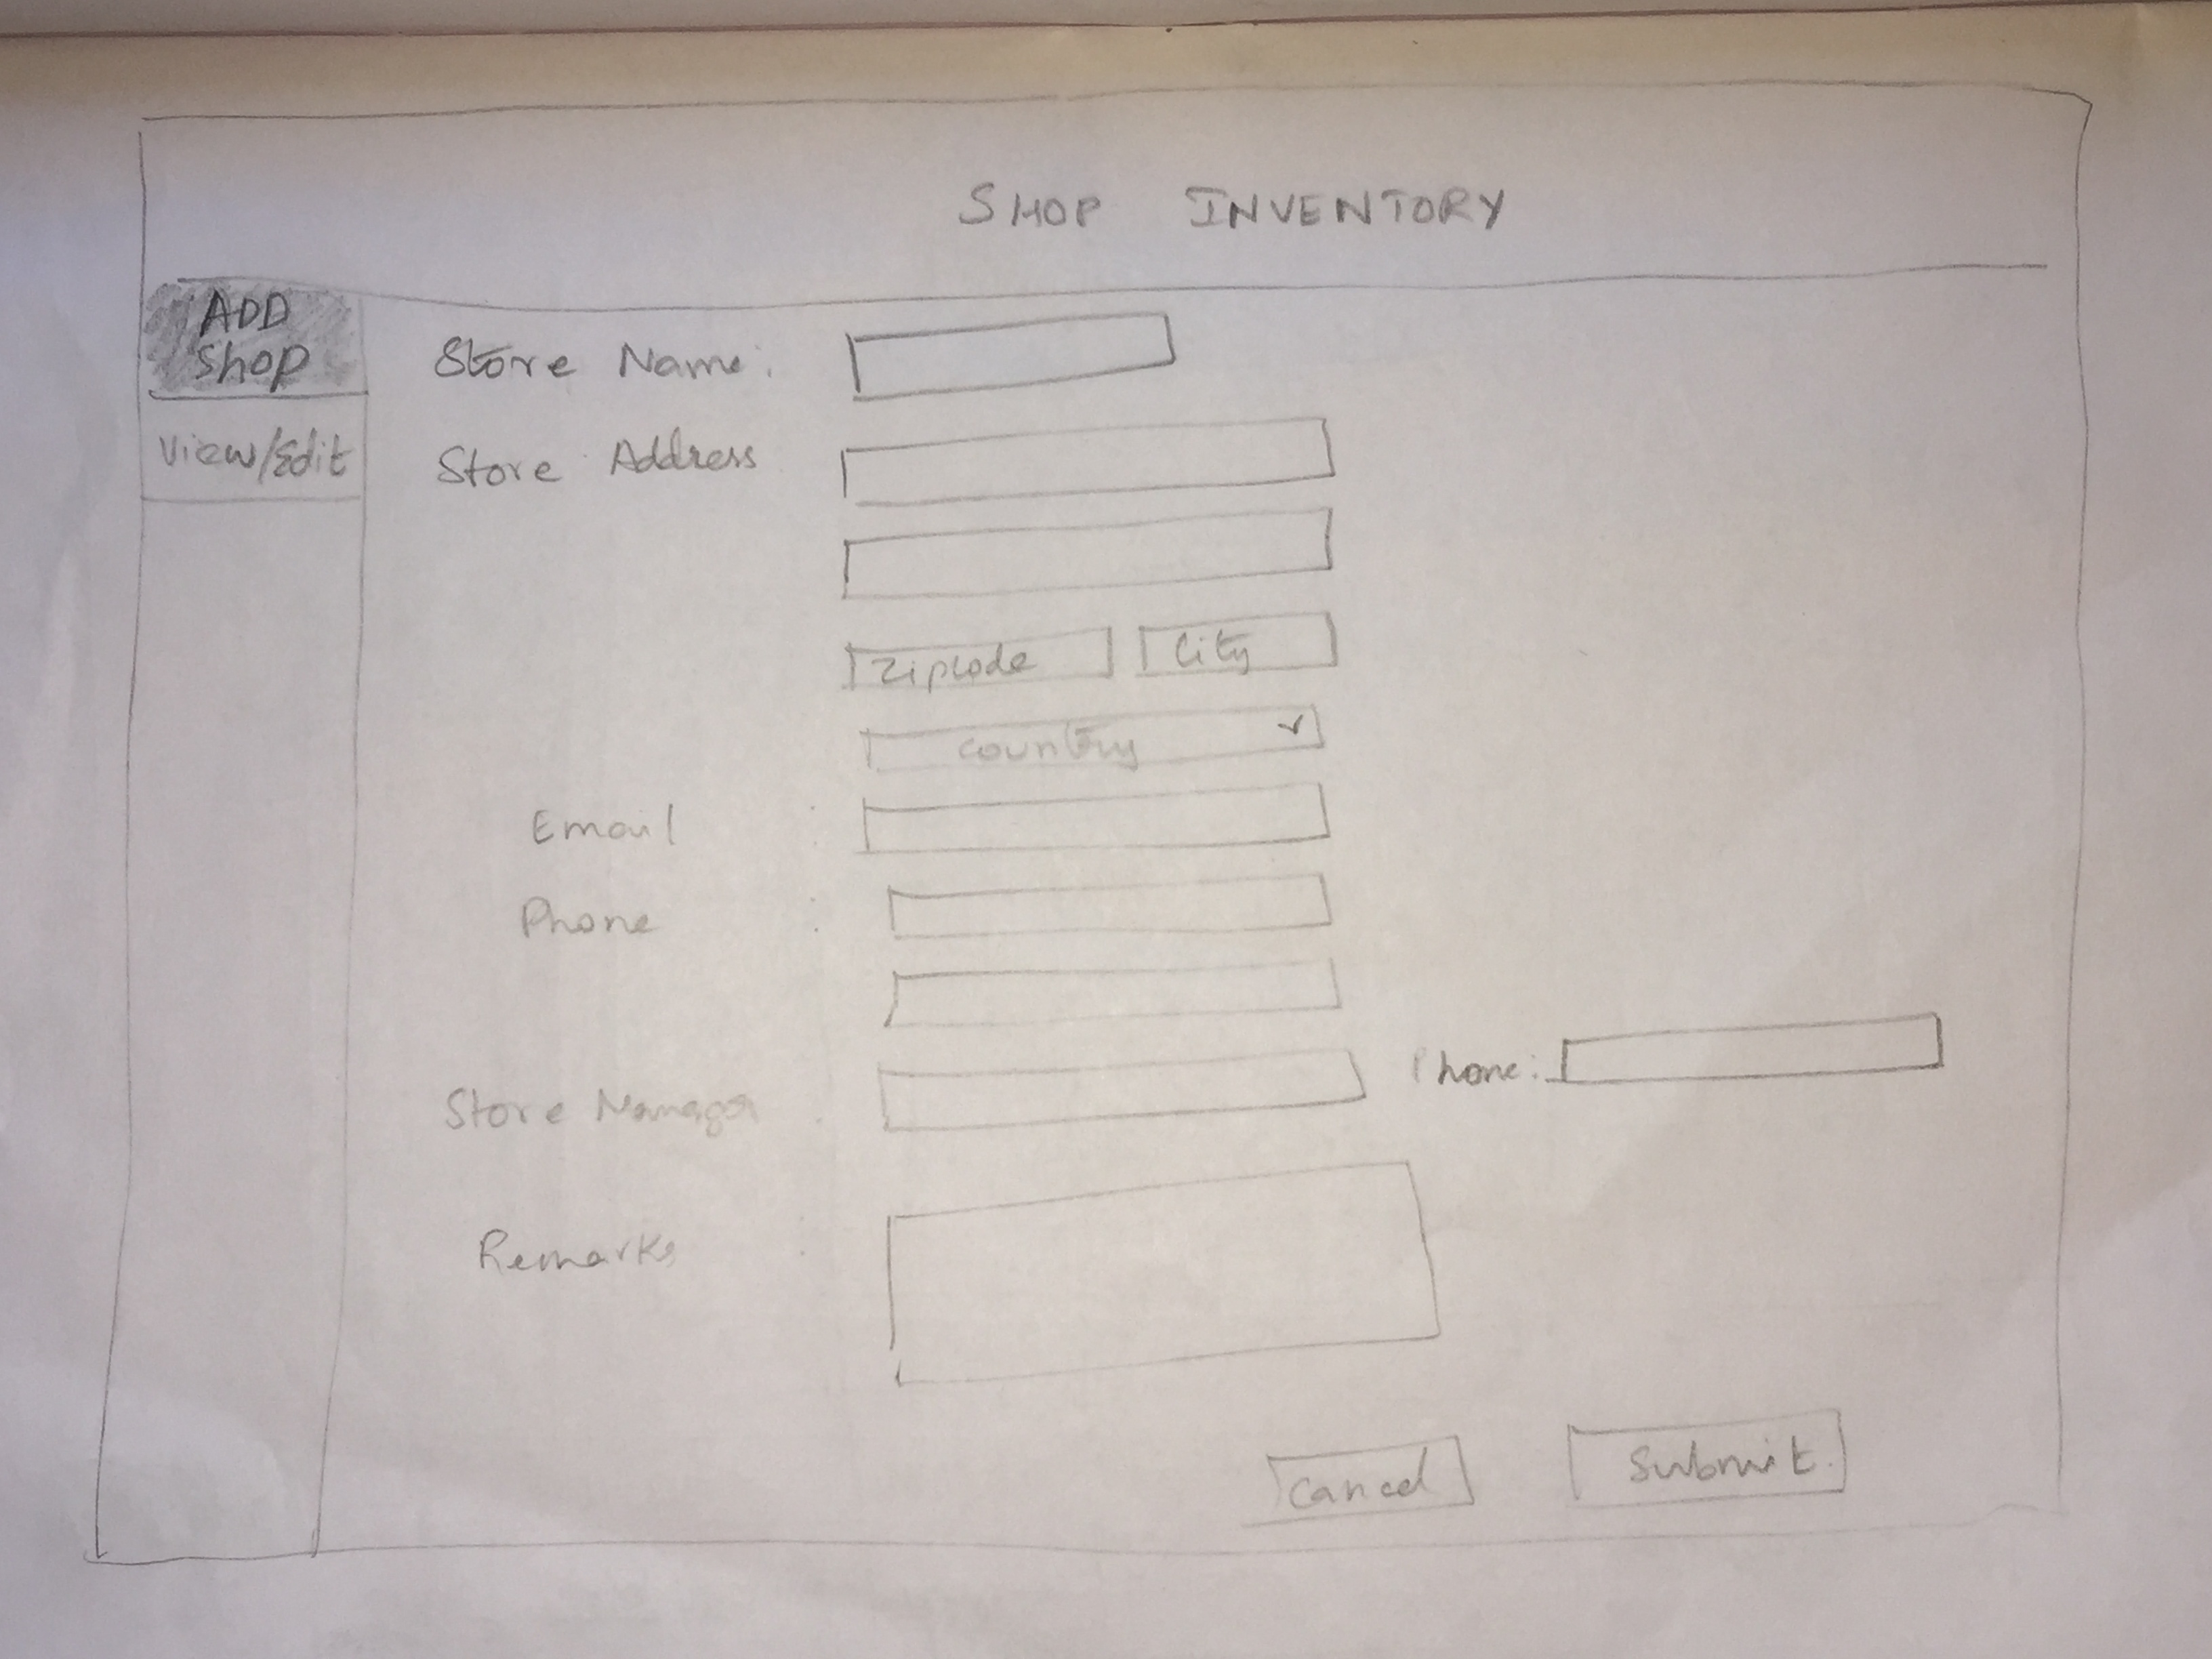 SHOP INVENTORY
ADD
Shop
View/Edit
Store Name:
Store Address
Zipcode
City
Country
Email :
Phone :
Store Manager :
Phone:
Remarks :
Cancel
Submit